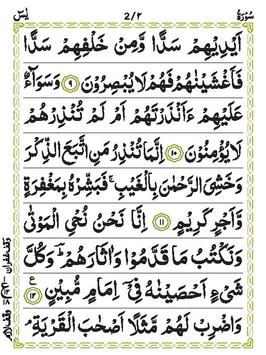 سُوْرَةُ ٢/٢ يٰسٓ
اَيْدِيْهِمْ سَدًّا وَّمِنْ خَلْفِهِمْ سَدًّا
فَاَغْشَيْنٰهُمْ فَهُمْ لَا يُبْصِرُوْنَ ٩ وَسَوَآءٌ
عَلَيْهِمْ ءَاَنْذَرْتَهُمْ اَمْ لَمْ تُنْذِرْهُمْ
لَا يُؤْمِنُوْنَ ١٠ اِنَّمَا تُنْذِرُ مَنِ اتَّبَعَ الذِّكْرَ
وَخَشِيَ الرَّحْمٰنَ بِالْغَيْبِ ۚ فَبَشِّرْهُ بِمَغْفِرَةٍ
وَّاَجْرٍ كَرِيْمٍ ١١ اِنَّا نَحْنُ نُحْيِ الْمَوْتٰى
وَنَكْتُبُ مَا قَدَّمُوْا وَاٰثَارَهُمْ ؕ وَكُلَّ
شَيْءٍ اَحْصَيْنٰهُ فِيْۤ اِمَامٍ مُّبِيْنٍ ١٢ ع
وَاضْرِبْ لَهُمْ مَّثَلًا اَصْحٰبَ الْقَرْيَةِ ۘ